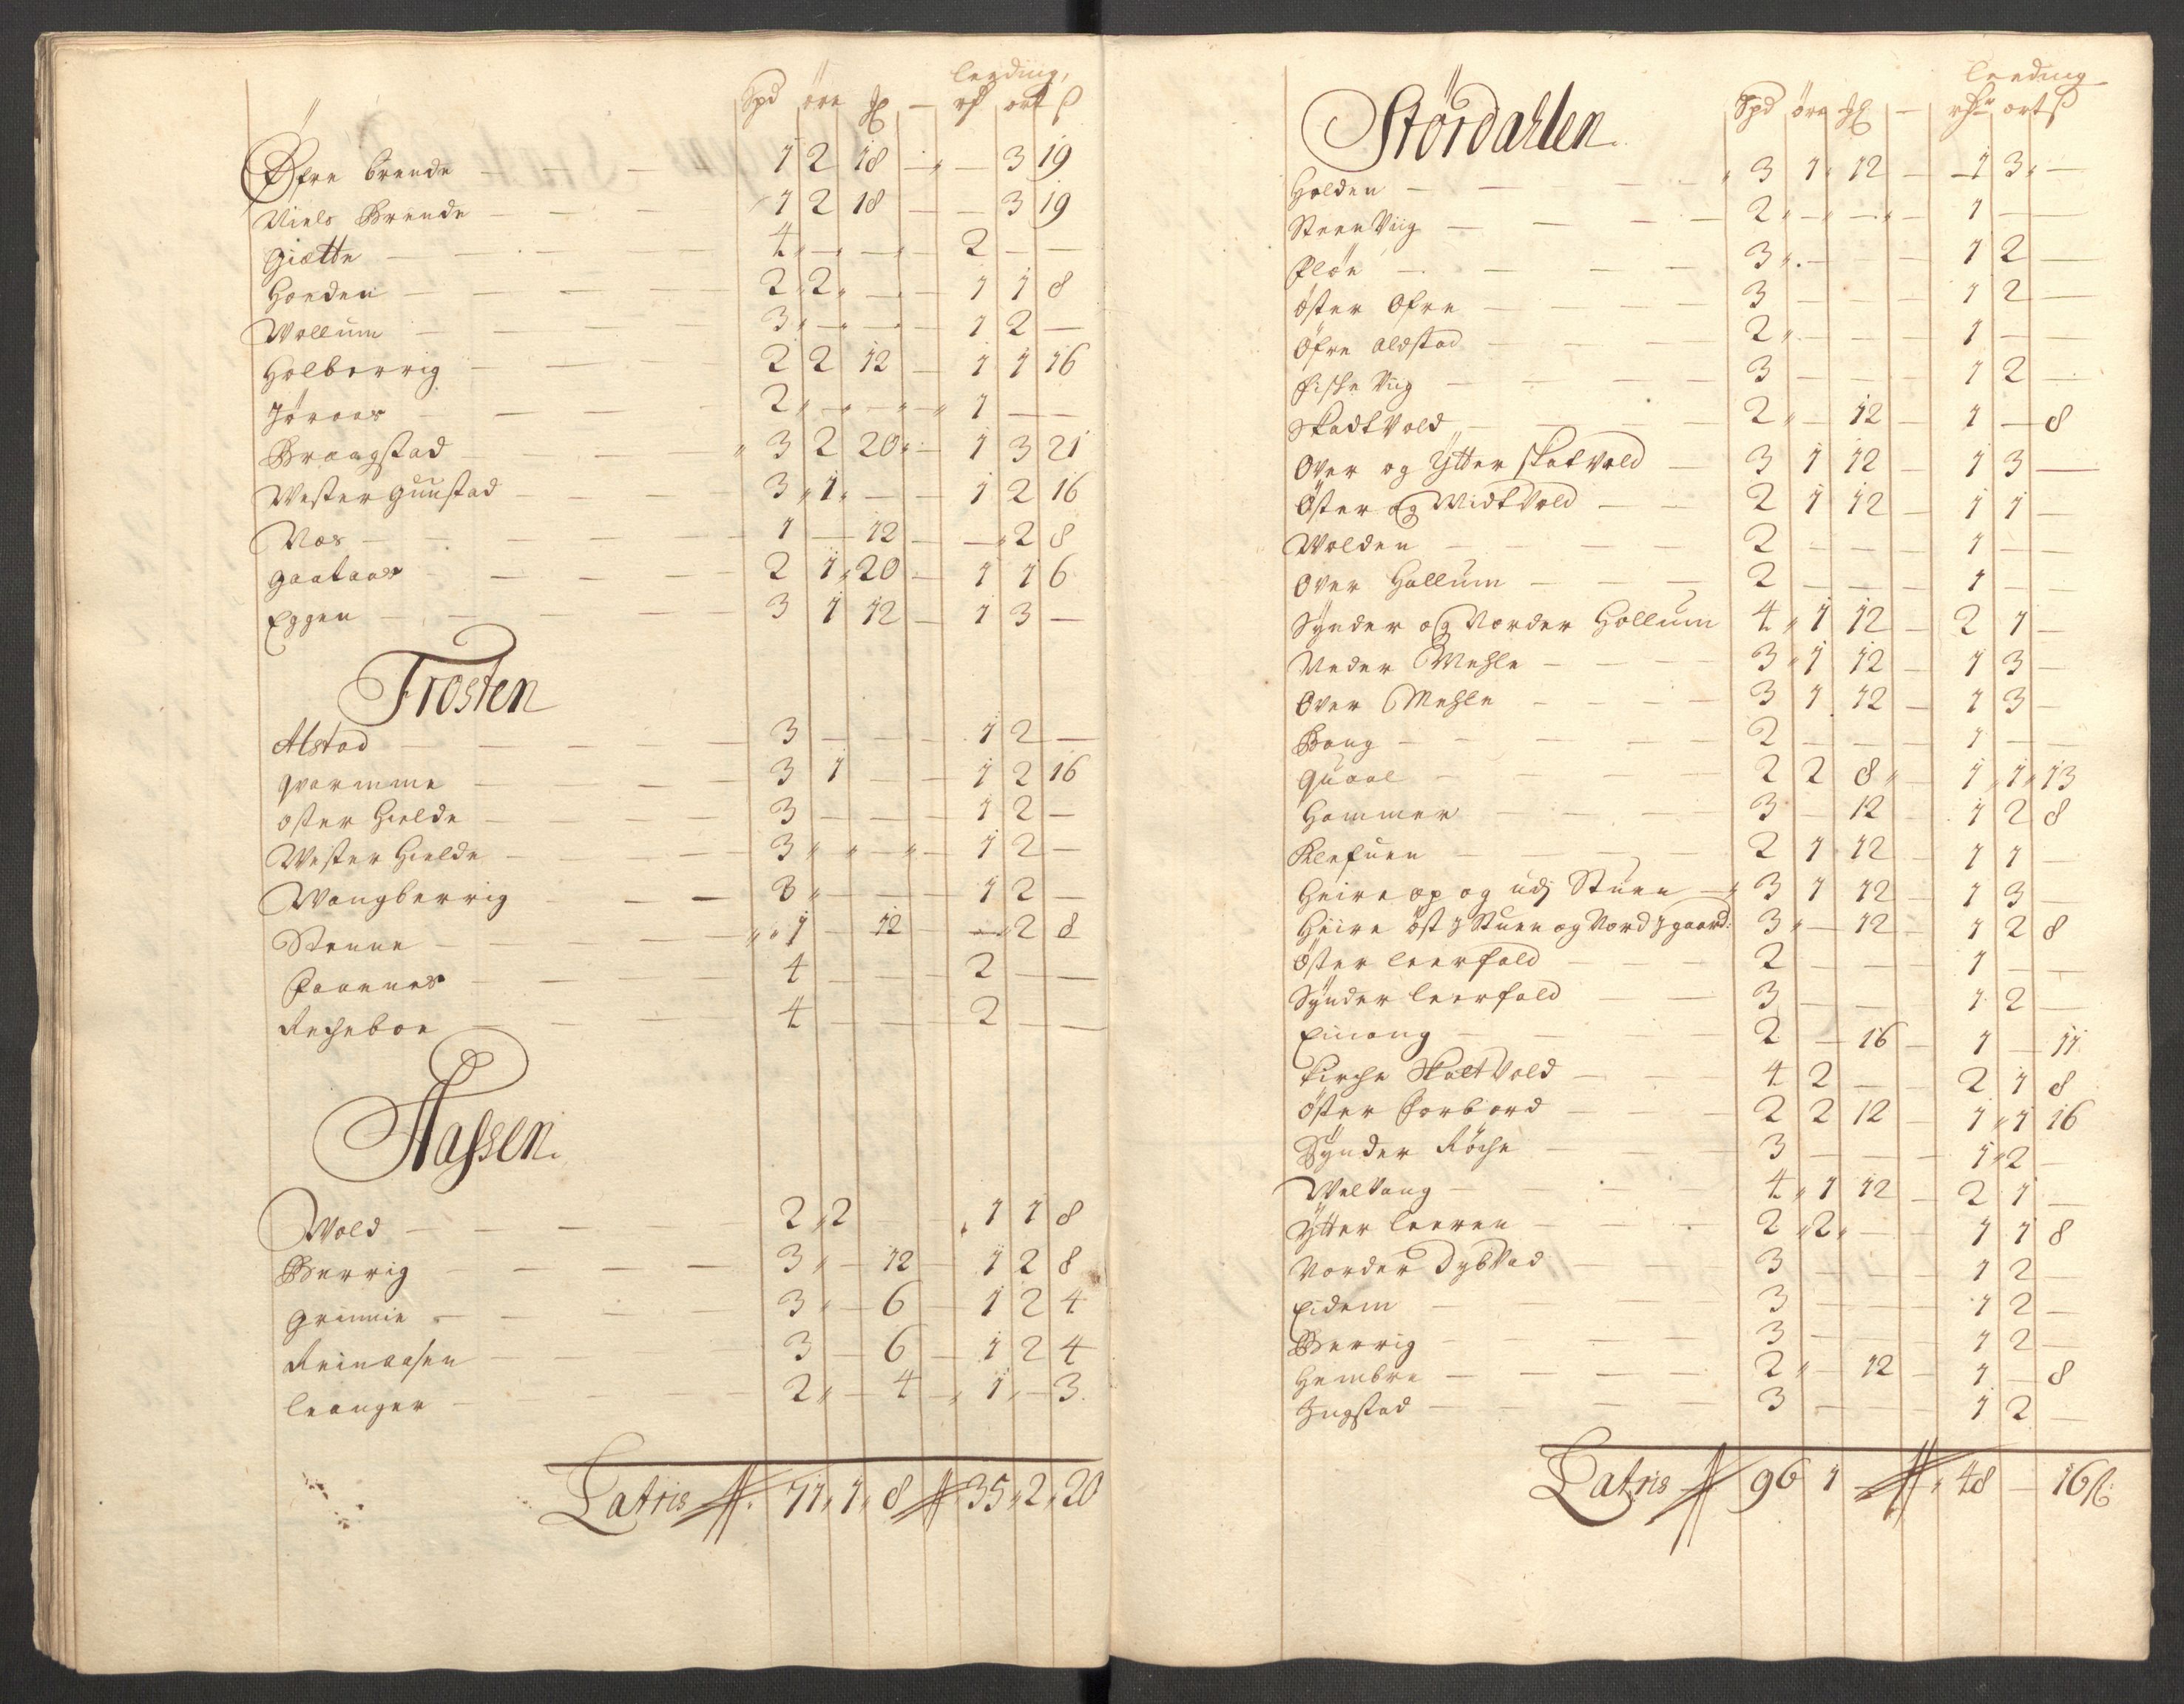 Leeding
Spd öre ₥ — rd ort ß
Öfre brende — 1 2 18 — 3 19
Niels Brende — 1 2 18 — 3 19
Giætte — 4 — — — 2 — —
Hoeden — 2 2 — — 1 1 8
Wollum — 3 — — — 1 2 —
Holberrig — 2 2 12 — 1 1 16
Jøraas — 2 — — — 1 — —
Braagstad — 3 2 20 — 1 3 21
Wester Guustad — 3 1 — — 1 2 16
Næs — 1 — 12 — — 2 8
Gaataas — 2 1 20 — 1 1 6
Eggen — 3 1 12 — 1 3 —
Frosten
Alstad — 3 — — — 1 2 —
Qvarmme — 3 1 — — 1 2 16
Øster Hielde — 3 — — — 1 2 —
Wester Hielde — 3 — — — 1 2 —
Wangberrig — 3 — — — 1 2 —
Stenne — 1 — 12 — — 2 8
Faanes — 4 — — — 2 — —
Recheboe — 4 — — — 2 — —
Aassen
Wold — 2 2 1 1 8
Berrig — 3 — 12 — 1 2 8
Grinnie — 3 — 6 — 1 2 4
Reinaasen — 3 — 6 — 1 2 4
Leanger — 2 — 4 — 1 — 3
Latris 71 1 8 35 2 20
Leeding
Stördahlen Spd öre ₥ — rdr ort ß
Holden — 3 1 12 — 1 3 —
Steen Viig — 2 — — — 1 — —
Fløn — 3 — — — 1 2 —
Öster Øfre — 3 — — — 1 2 —
Öfre Aldstad — 2 — — — 1 — —
Fische Viig — 3 — — — 1 2 —
Skadt Vold — 2 — 12 — 1 — 8
Over og Ytter Skatvold — 3 1 12 — 1 3 —
Öster og Midt Vold — 2 1 12 — 1 1 —
Wolden — 2 — — — 1 — —
Over Hollum — 2 — — — 1 — —
Synder og Norder Hollum 4 1 12 — 2 1 —
Neder Mehle — 3 1 12 — 1 3 —
Over Mehle — 3 1 12 — 1 3 —
Bang — 2 — — — 1 — —
Quaal — 2 2 8 — 1 1 13
Hammer — 3 — 12 — 1 2 8
Klefuen — 2 1 12 — 1 1 —
Heire op og udj Stuen — 3 1 12 — 1 3 —
Heire öst j Stuen og Nord j gaard: 3 — 12 — 1 2 8
Öster Leerfald — 2 — — — 1 — —
Synder Leerfald — 3 — — — 1 2 —
Einang — 2 — 16 — 1 — 11
Kirche Skatt Vold — 4 2 — — 2 1 8
Öster Forbord — 2 2 12 — 1 1 16
Synder Röche — 3 — — — 1 2 —
Welvang — 4 1 12 — 2 1 —
Ytter Leeren — 2 2 — — 1 1 8
Norder Dybvad — 3 — — — 1 2 —
Eidem — 3 — — — 1 2 —
Berrig — 3 — — — 1 2 —
Hembre — 2 — 12 — 1 — 8
Ingstad — 3 — — — 1 2 —
Latris 96 1 — 48 — 16 ß